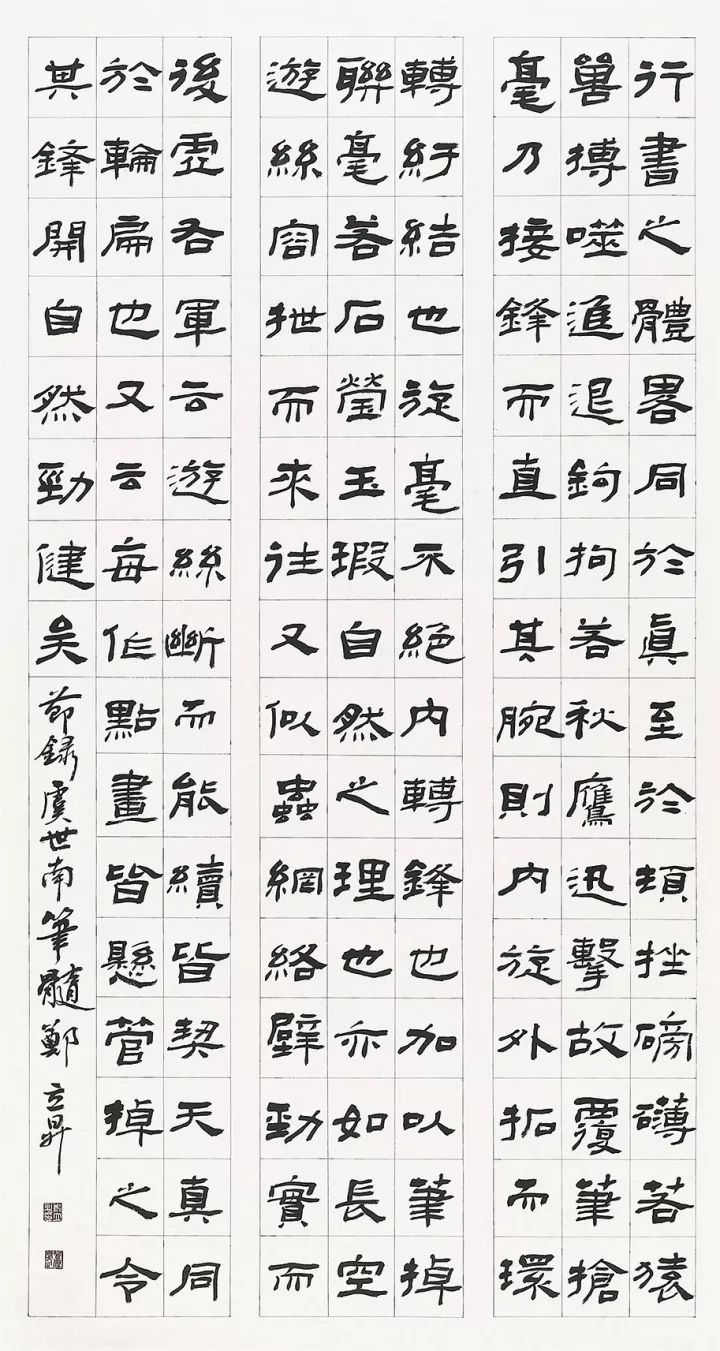 行書之體畧同於眞至於頓挫磅礴若猿
嘼搏噬進退鉤拘若秋鷹迅擊故覆筆搶
毫乃接鋒而直引其腕則内旋外拓而環
轉紆結也旋毫不絕内轉鋒也加以筆掉
聯毫若石瑩玉瑕自然之理也亦如長空
遊絲容抴而來往又似蟲網絡壁勁實而
後虛右軍云遊絲斷而能續皆契天真同
於輪扁也又云每作點畫皆懸管掉之令
其鋒開自然勁健矣 節録虞世南筆髓 鄭立昇